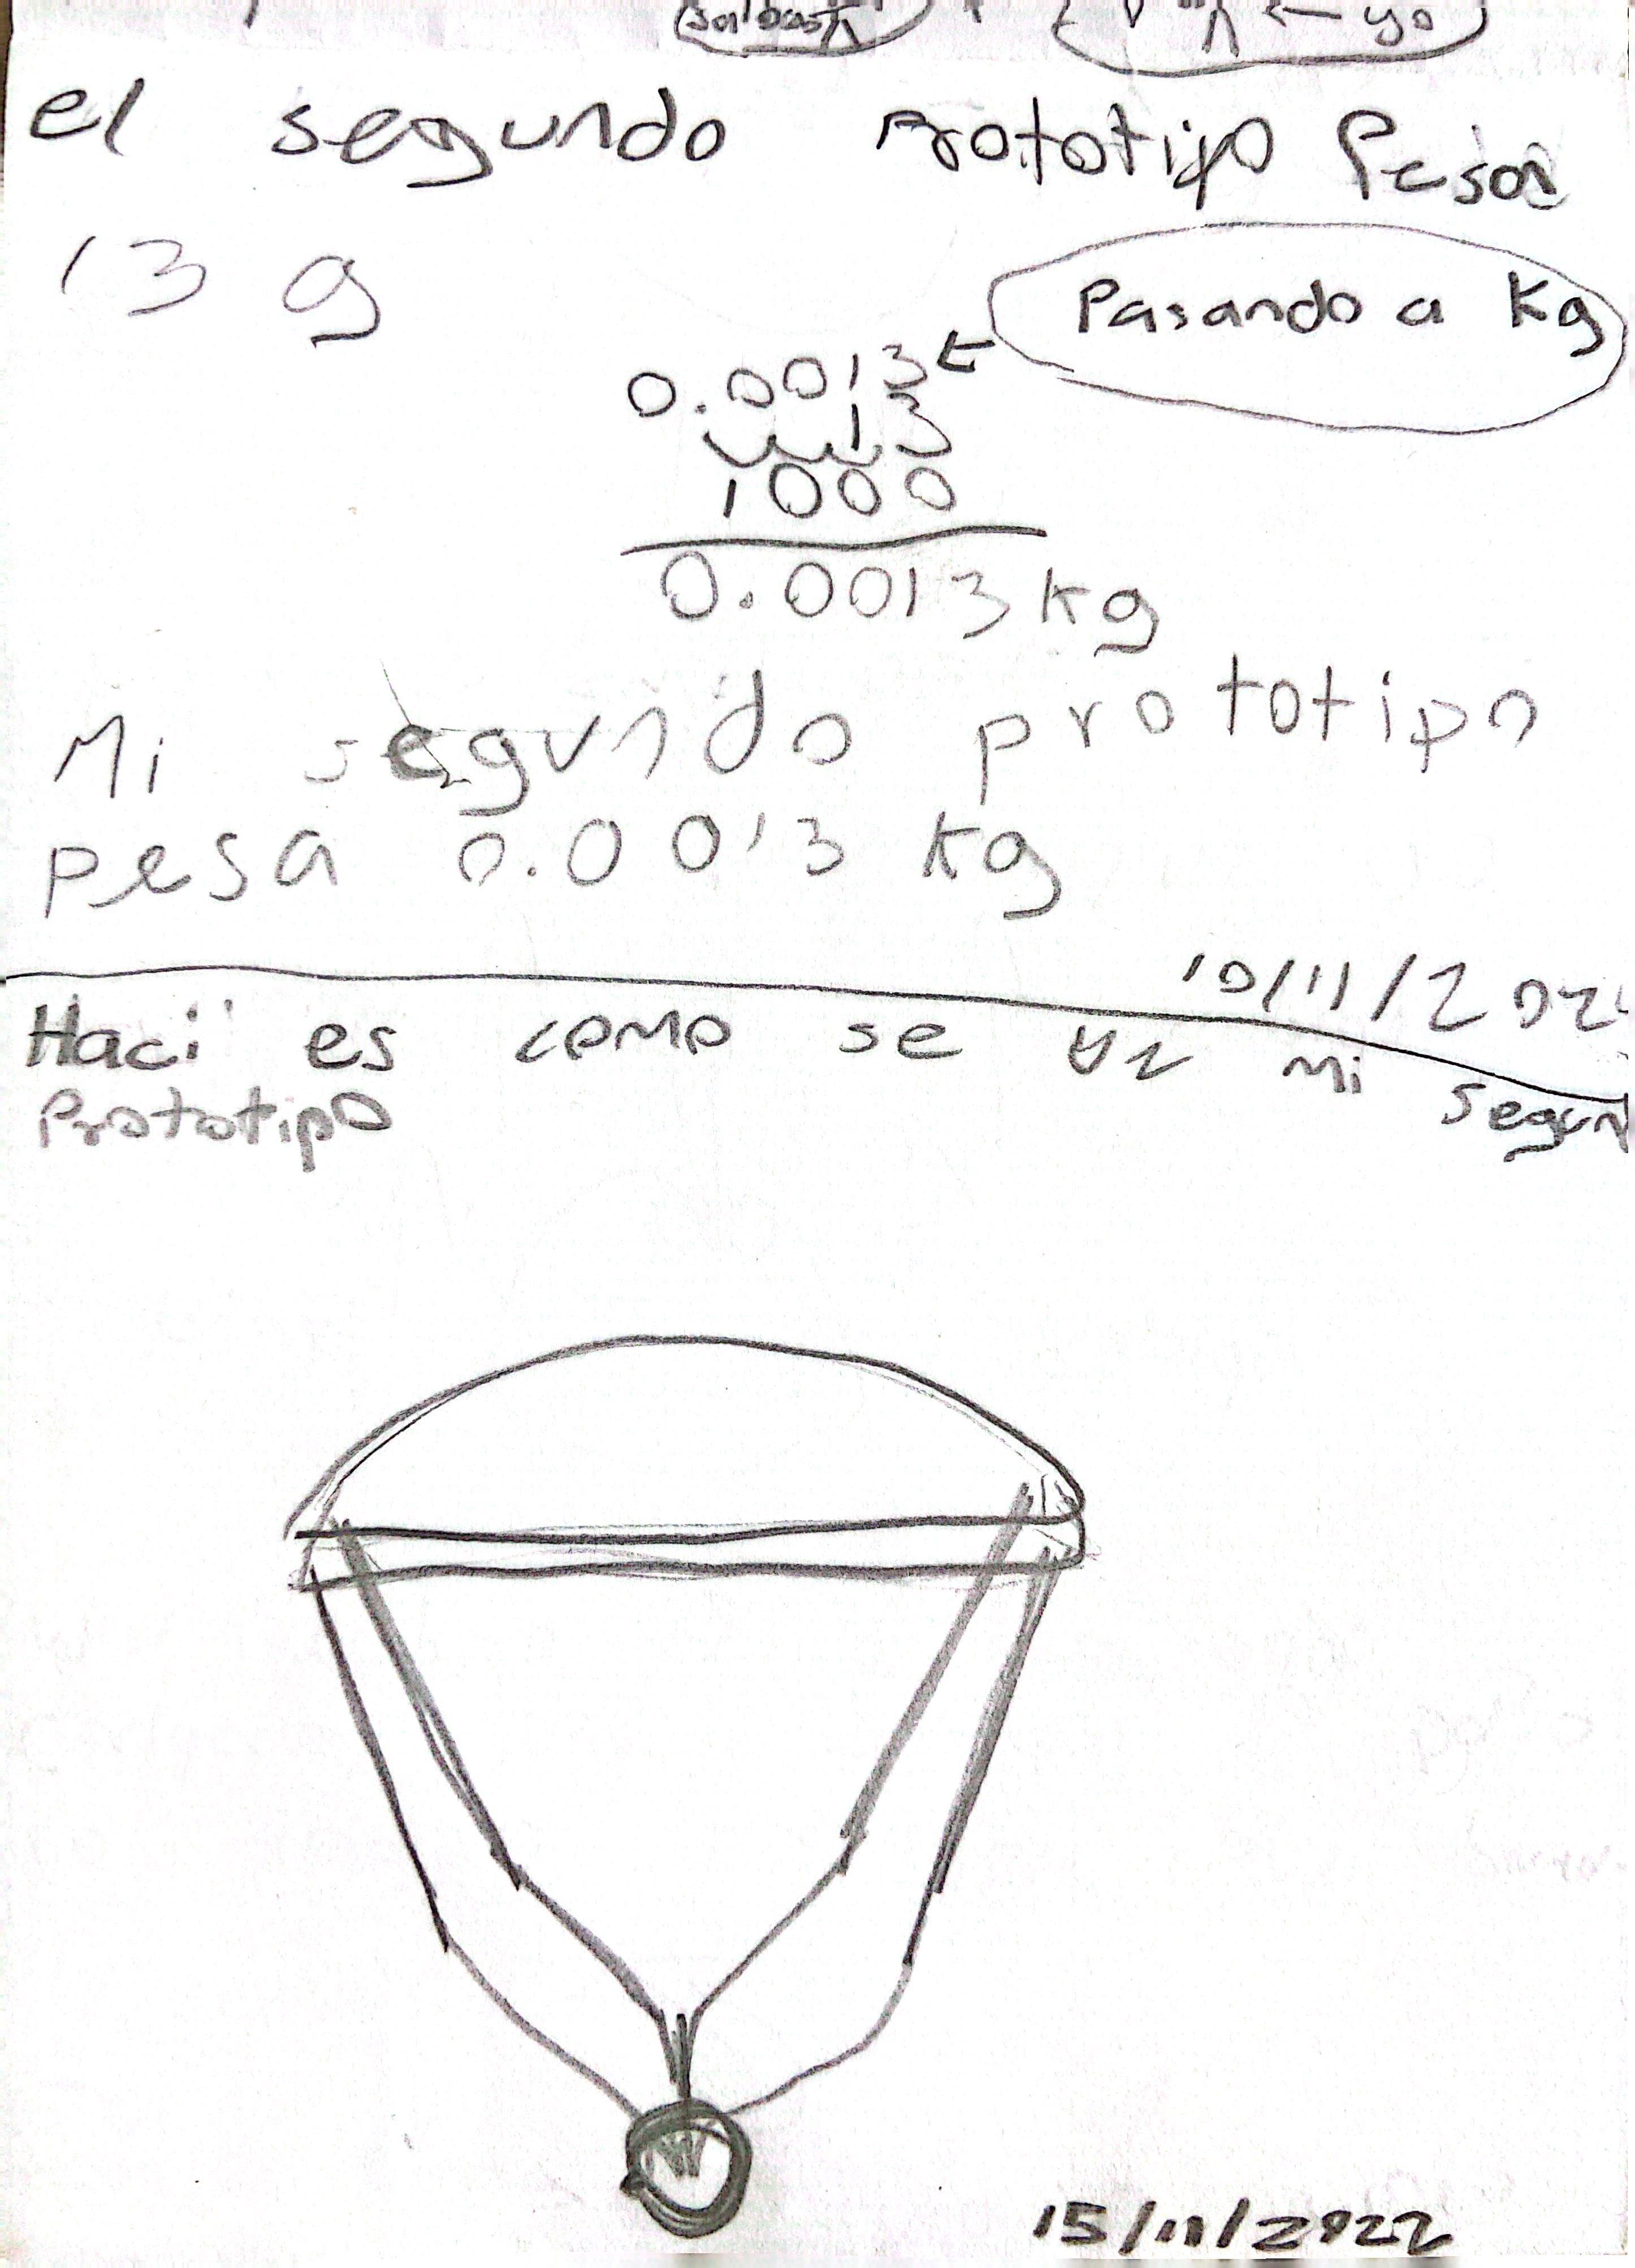 ← yo
el segundo Prototipo Pesa
13 g
Pasando a Kg
0.0013 ←
13
1000
0.0013 kg
Mi segundo prototipo
pesa 0.0013 kg
10/11/202
Haci es como se ve mi segun
Prototipo
15/11/2022